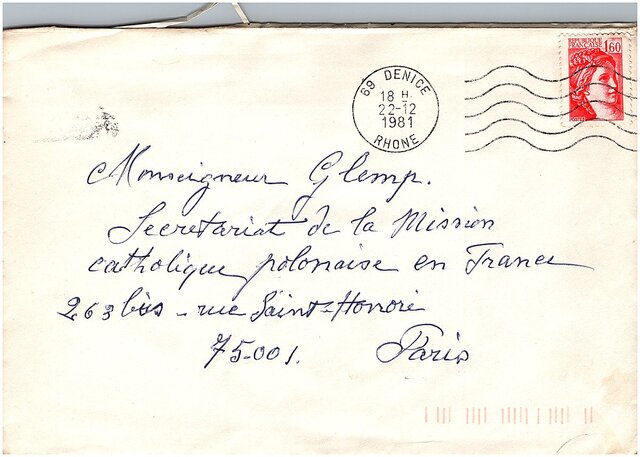 REPUBLIQUE FRANÇAISE 1,60
69 DENICE
18 H
22-12
1981
RHONE
Monseigneur Glemp.
Secretariat de la Mission
catholique polonaise en France
263 bis - rue Saint-Honoré
75-001. Paris